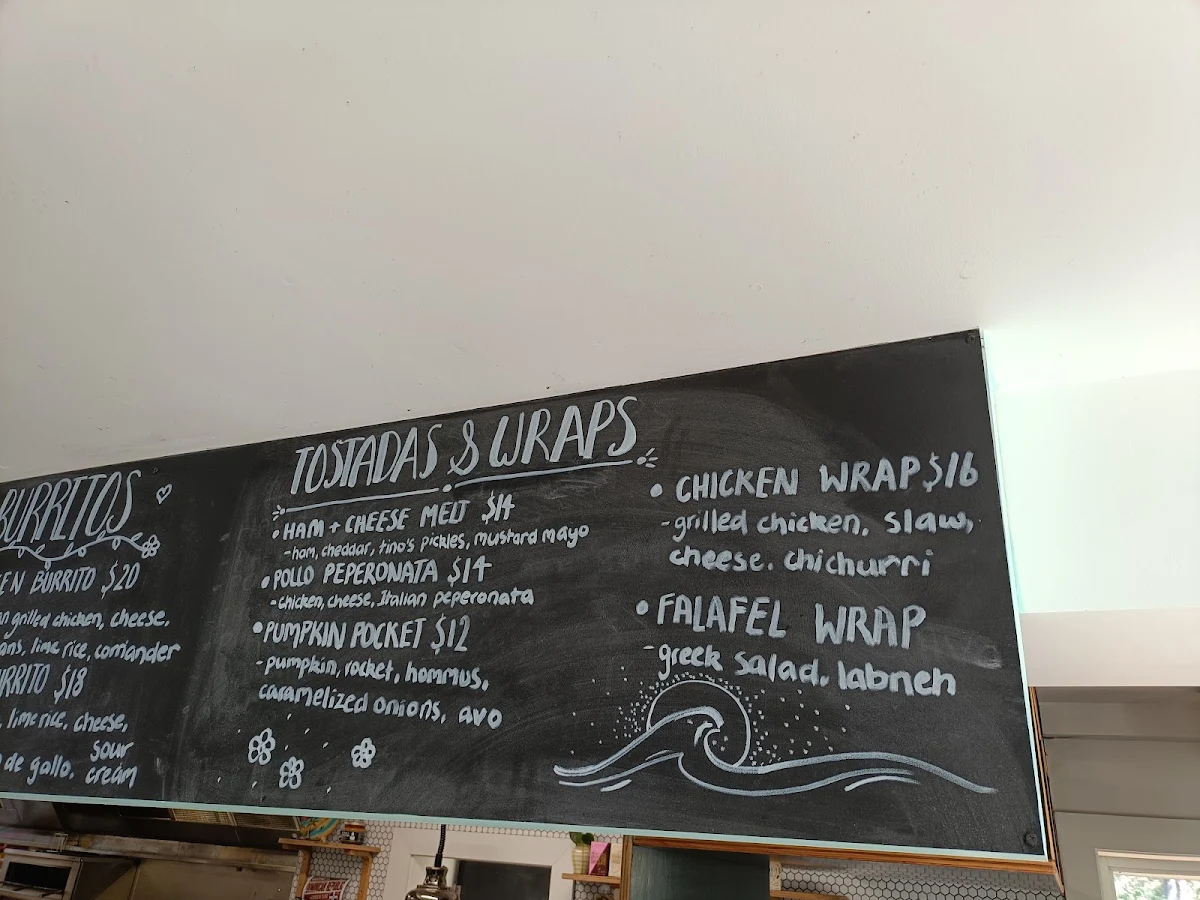 BURRITOS
EN BURRITO $20
grilled chicken, cheese,
ans, lime rice, coriander
RRITO $18
, lime rice, cheese,
sour
de gallo, cream
TOSTADAS & WRAPS
• HAM + CHEESE MELT $14
- ham, cheddar, tino's pickles, mustard mayo
• POLLO PEPERONATA $14
- chicken, cheese, Italian peperonata
• PUMPKIN POCKET $12
- pumpkin, rocket, hommus,
caramelized onions, avo
• CHICKEN WRAP $16
- grilled chicken, slaw,
cheese. chichurri
• FALAFEL WRAP
- greek salad, labneh